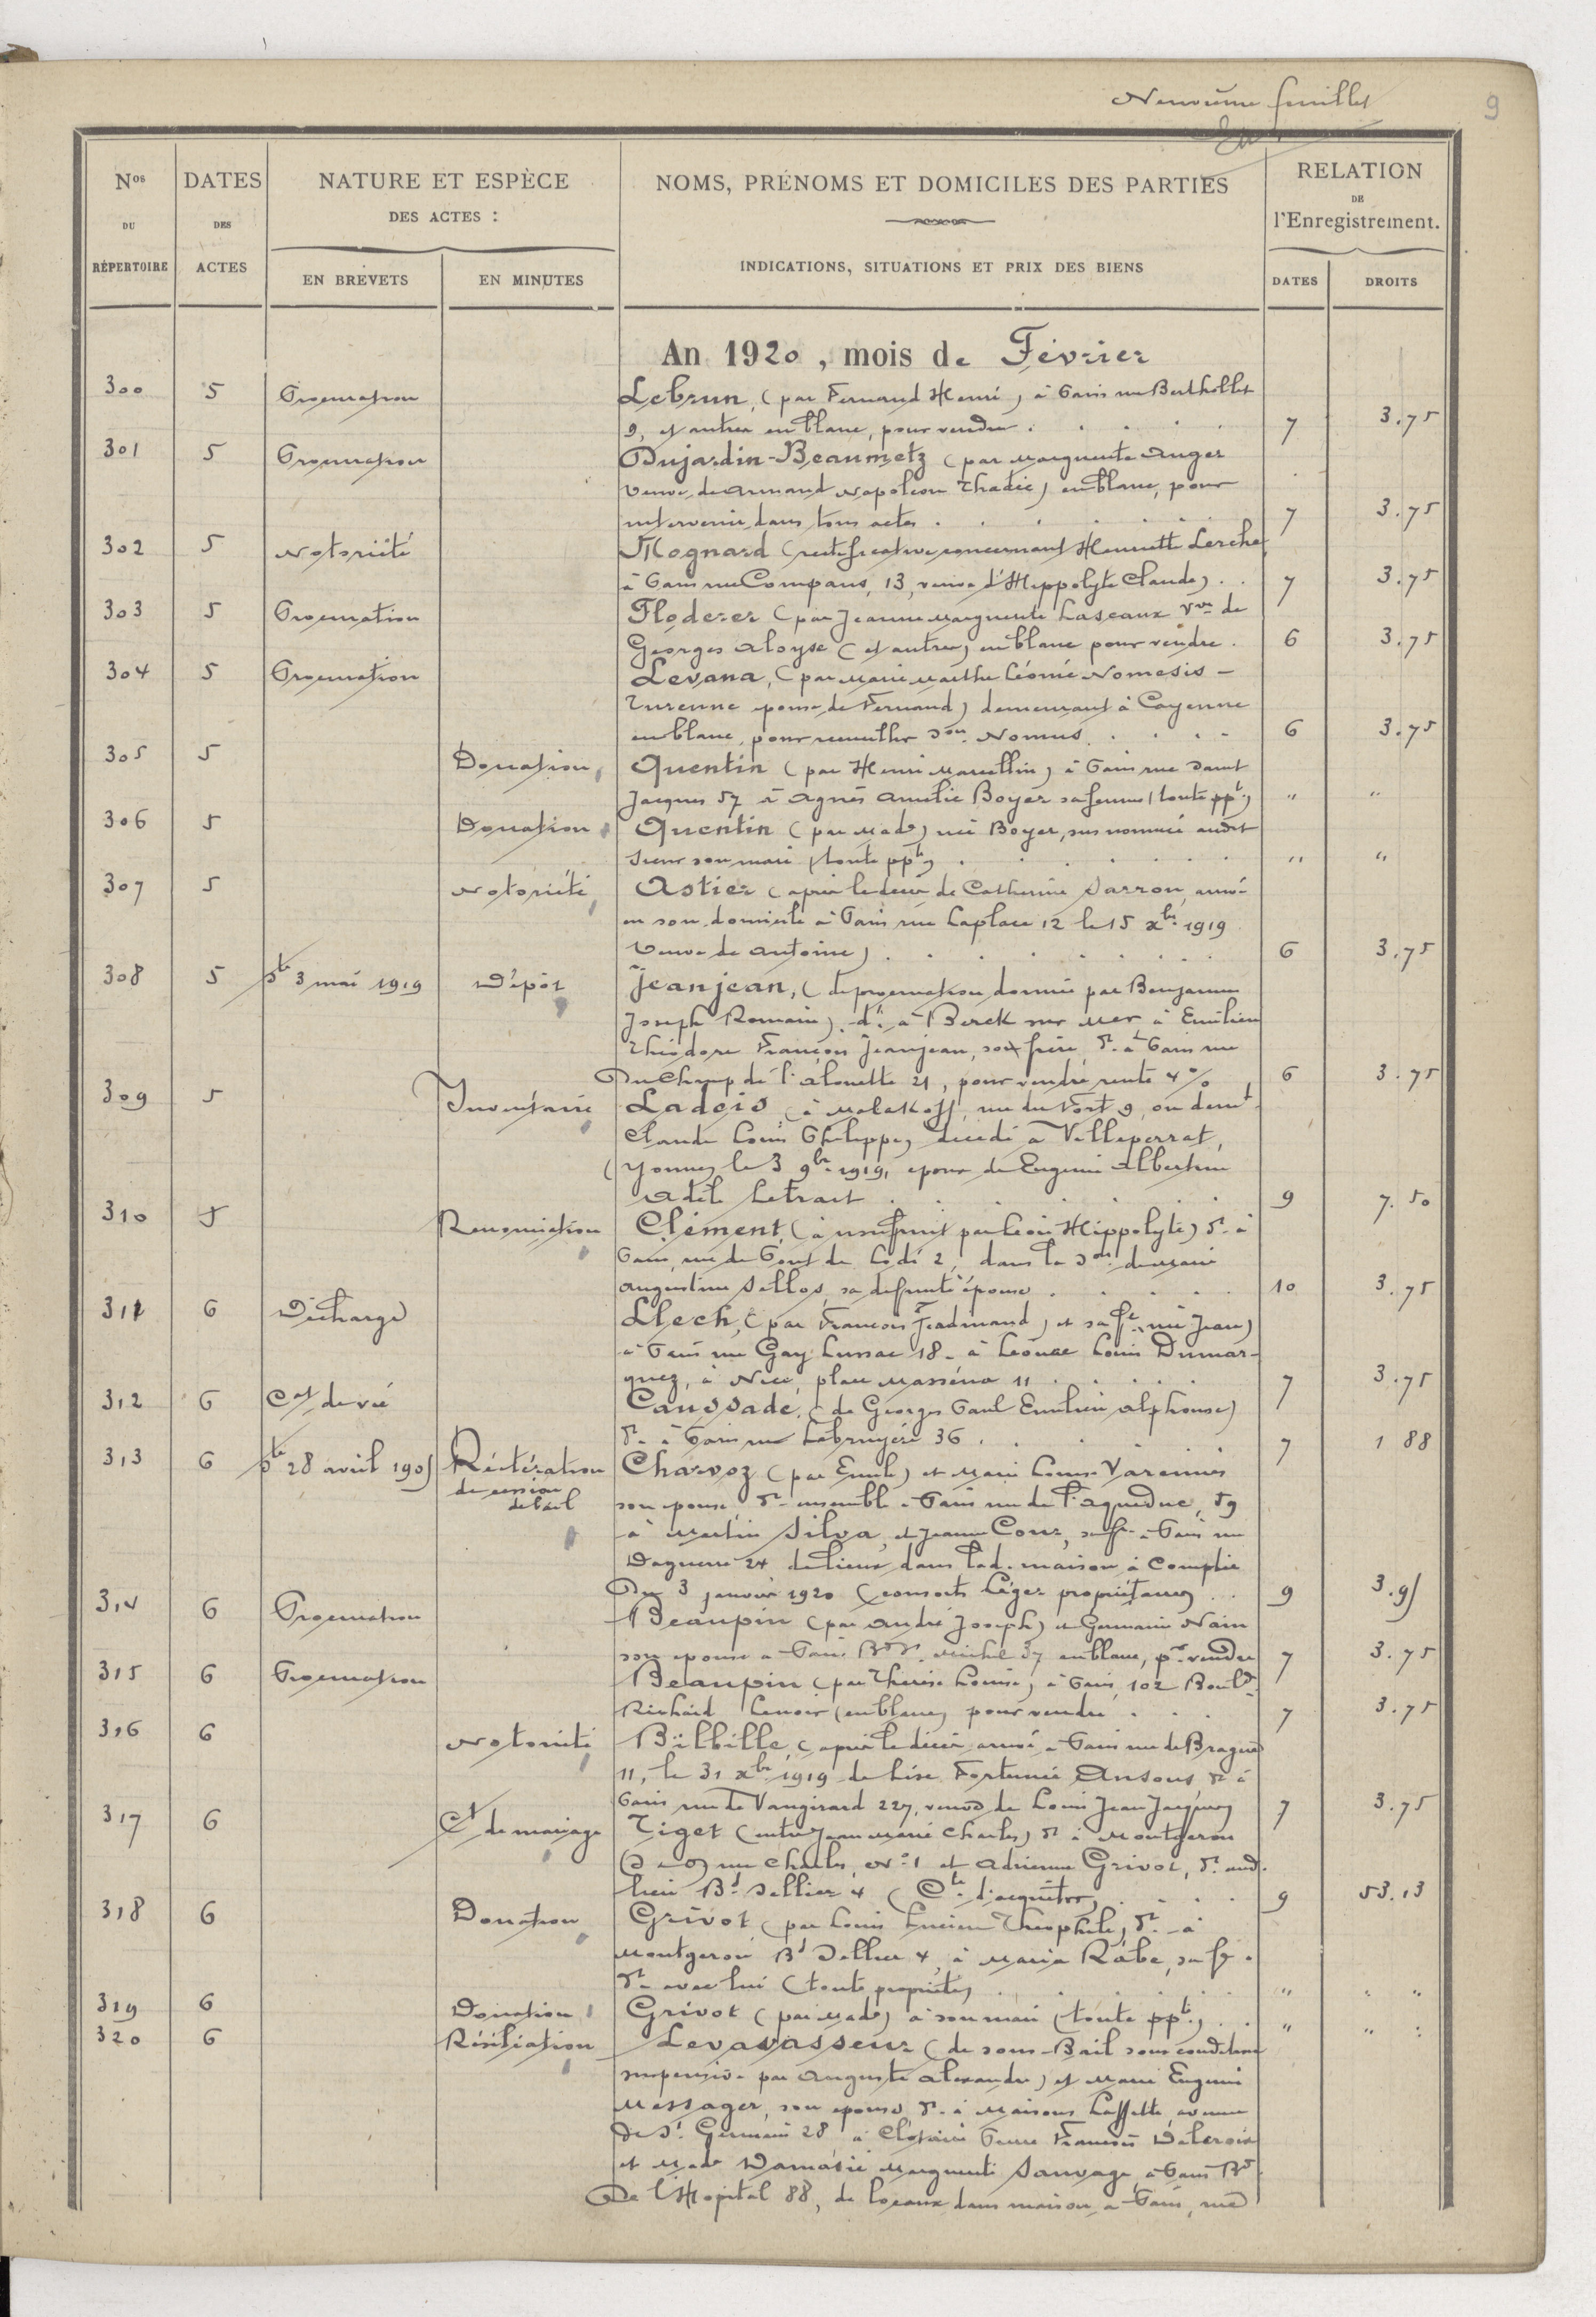 Neuvième feuillet
9
Nos DU RÉPERTOIRE
DATES DES ACTES
NATURE ET ESPÈCE DES ACTES :
EN BREVETS
EN MINUTES
NOMS, PRÉNOMS ET DOMICILES DES PARTIES
INDICATIONS, SITUATIONS ET PRIX DES BIENS
RELATION DE l'Enregistrement.
DATES
DROITS
An 1920, mois de Février
300 5 Procuration Lebrun, (par Fernand Henri) à Paris rue Berthollet
9, et autres en blanc, pour vendre . 7 3.75
301 5 Procuration Dujardin-Beaumetz (par Marguerite Auger
veuve de Armand Napoléon Thadée) en blanc, pour
intervenir dans tous actes . 7 3.75
302 5 Notoriété Mognard (rectificative concernant Henriette Lerche
à Paris rue Compans, 13, veuve d'Hippolyte Claude) . 7 3.75
303 5 Procuration Floderer (par Jeanne Marguerite Lascaux Vve de
Georges Aloyse (et autres) en blanc pour vendre . 6 3.75
304 5 Procuration Levana, (par Marie Marthe Léonie Nomesis -
Turenne épouse de Fernand) demeurant à Cayenne
en blanc, pour recueillir son Nomus . 6 3.75
305 5 Donation Quentin (par Henri Marcellin) à Paris rue Saint
Jacques 57 à Agnès Amélie Boyer sa femme (toute ppté) " "
306 5 Donation Quentin (par Made) née Boyer, sus nommée audit
sieur son mari (toute ppté) . " "
307 5 Notoriété Astier (après le décès de Catherine Sarron, arrivé
en son domicile à Paris rue Laplace 12 le 15 xbre 1919
Veuve de Antoine) . 6 3.75
308 5 pt 3 mai 1919 Dépôt Jeanjean, (de procuration donnée par Benjamin
Joseph Romain) dt à Berck sur Mer à Emilien
Théodore François Jeanjean, son frère, dt à Paris rue
Du Champ de l'Alouette 21, pour vendre rente 4% 6 3.75
309 5 Inventaire Ladois (à Malakoff, rue du Fort 9, où demt
Claude Louis Philippe) décédé à Villeperrat,
(Yonne) le 3 9bre 1919, époux de Eugénie Albertine
Adèle Letrait . 9 7.50
310 5 Renonciation Clément, (à usufruit par Léon Hippolyte) dt à
Paris, rue du Pont de Lodi 2, dans la son de Marie
Augustine Sellos, sa défunte épouse . 10 3.75
311 6 Décharge Llech, (par François Ferdinand) et sa fe née Jean)
à Paris rue Gay Lussac 18 - à Léonce Louis Dumar-
quez, à Nice, place Masséna 11 . 7 3.75
312 6 Cat de vie Caussade, (de Georges Paul Emilien Alphonse)
dt à Paris rue Labruyère 36 . 7 1 88
313 6 pt 28 avril 1905 Réitération de cession de bail Charvoz (par Emile) et Marie Louise Varennes
son épouse, dt ensemble à Paris rue de l'aqueduc, 59
à Martin Silva, et Jeanne Cour, sa fe à Paris rue
Daguerre 24 de lieux dans lad. maison à compter
Du 3 janvier 1920 (consorts Léger propriétaires) . . 9 3.95
314 6 Procuration Beaupin (par André Joseph) et Germaine Nain
son épouse à Paris Bd St Michel 37 en blanc, pr vendre 7 3.75
315 6 Procuration Beaupin (par Thérèse Louise) à Paris, 102 Bould
Richard Lenoir (en blanc) pour vendre . 7 3.75
316 6 Notoriété Bilbille, (après le décès arrivé à Paris rue de Brague
11, le 31 xbre 1919 de Lise Fortunée Ansous dt à
Paris rue de Vaugirard 227, veuve de Louis Jean Jacques) 7 3.75
317 6 Ct de mariage Tiget (entre Jean Marie Charles) dt à Montgeron
(S et O) rue Charles, No 1 et Adrienne Grivot, dt aud.
lieu Bd Sellier 4 (Cté d'acquêts) . 9 53.13
318 6 Donation Grivot (par Louis Lucien Théophile) dt - à
Montgeron Bd Sellier 4, à Maria Râbe, sa fe.
dt avec lui (toute propriété) . " " "
319 6 Donation Grivot (par Made) à son mari (toute ppté) . . " " "
320 6 Résiliation Levavasseur (de sous-Bail sous condition
suspensive par Auguste Alexandre) et Marie Eugénie
Messager, son épouse, dt à Maisons Laffitte, avenue
de St Germain 28 à Clotaire Pierre François Delcroix
et Made Damasie Marguerite Sauvage, à Paris Bd
De l'Hopital 88, de locaux dans maison à Paris, rue